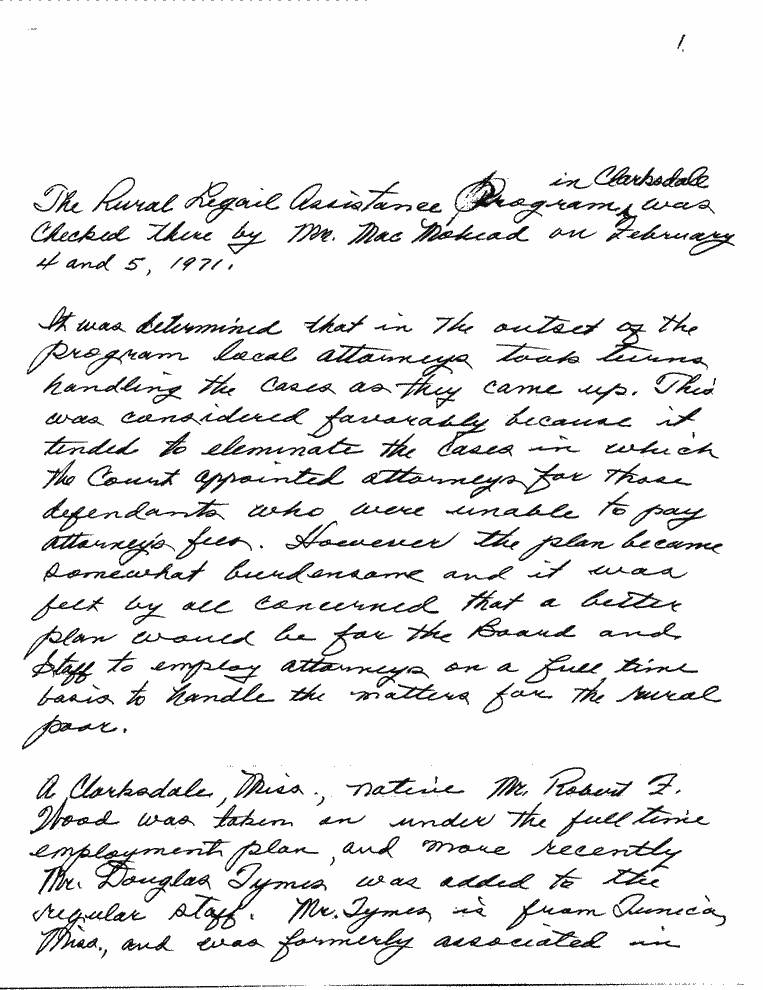 1.
in Clarksdale
The Rural Legail Assistance Program, was
Checked there by Mr. Mac Mohead on February
4 and 5, 1971.
It was determined that in The outset of the
program local attorneys took turns
handling the cases as they came up. This
was considered favorably because it
tended to eleminate the Cases in which
the Court appointed attorneys for those
defendants who were unable to pay
attorney's fees. However the plan became
somewhat burdensome and it was
felt by all concerned that a better
plan would be for the Board and
Staff to employ attorneys on a full time
basis to handle the matters for the rural
poor.
A Clarksdale, Miss., native Mr. Robert F.
Wood was taken on under the full time
employment plan, and more recently
Mr. Douglas Tymes was added to the
regular staff. Mr. Tymes is from Tunica,
Miss., and was formerly associated in